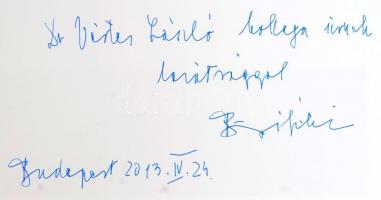 Dr Vértes László kollega úrnak
barátsággal
Budapest 2013. IV. 24.